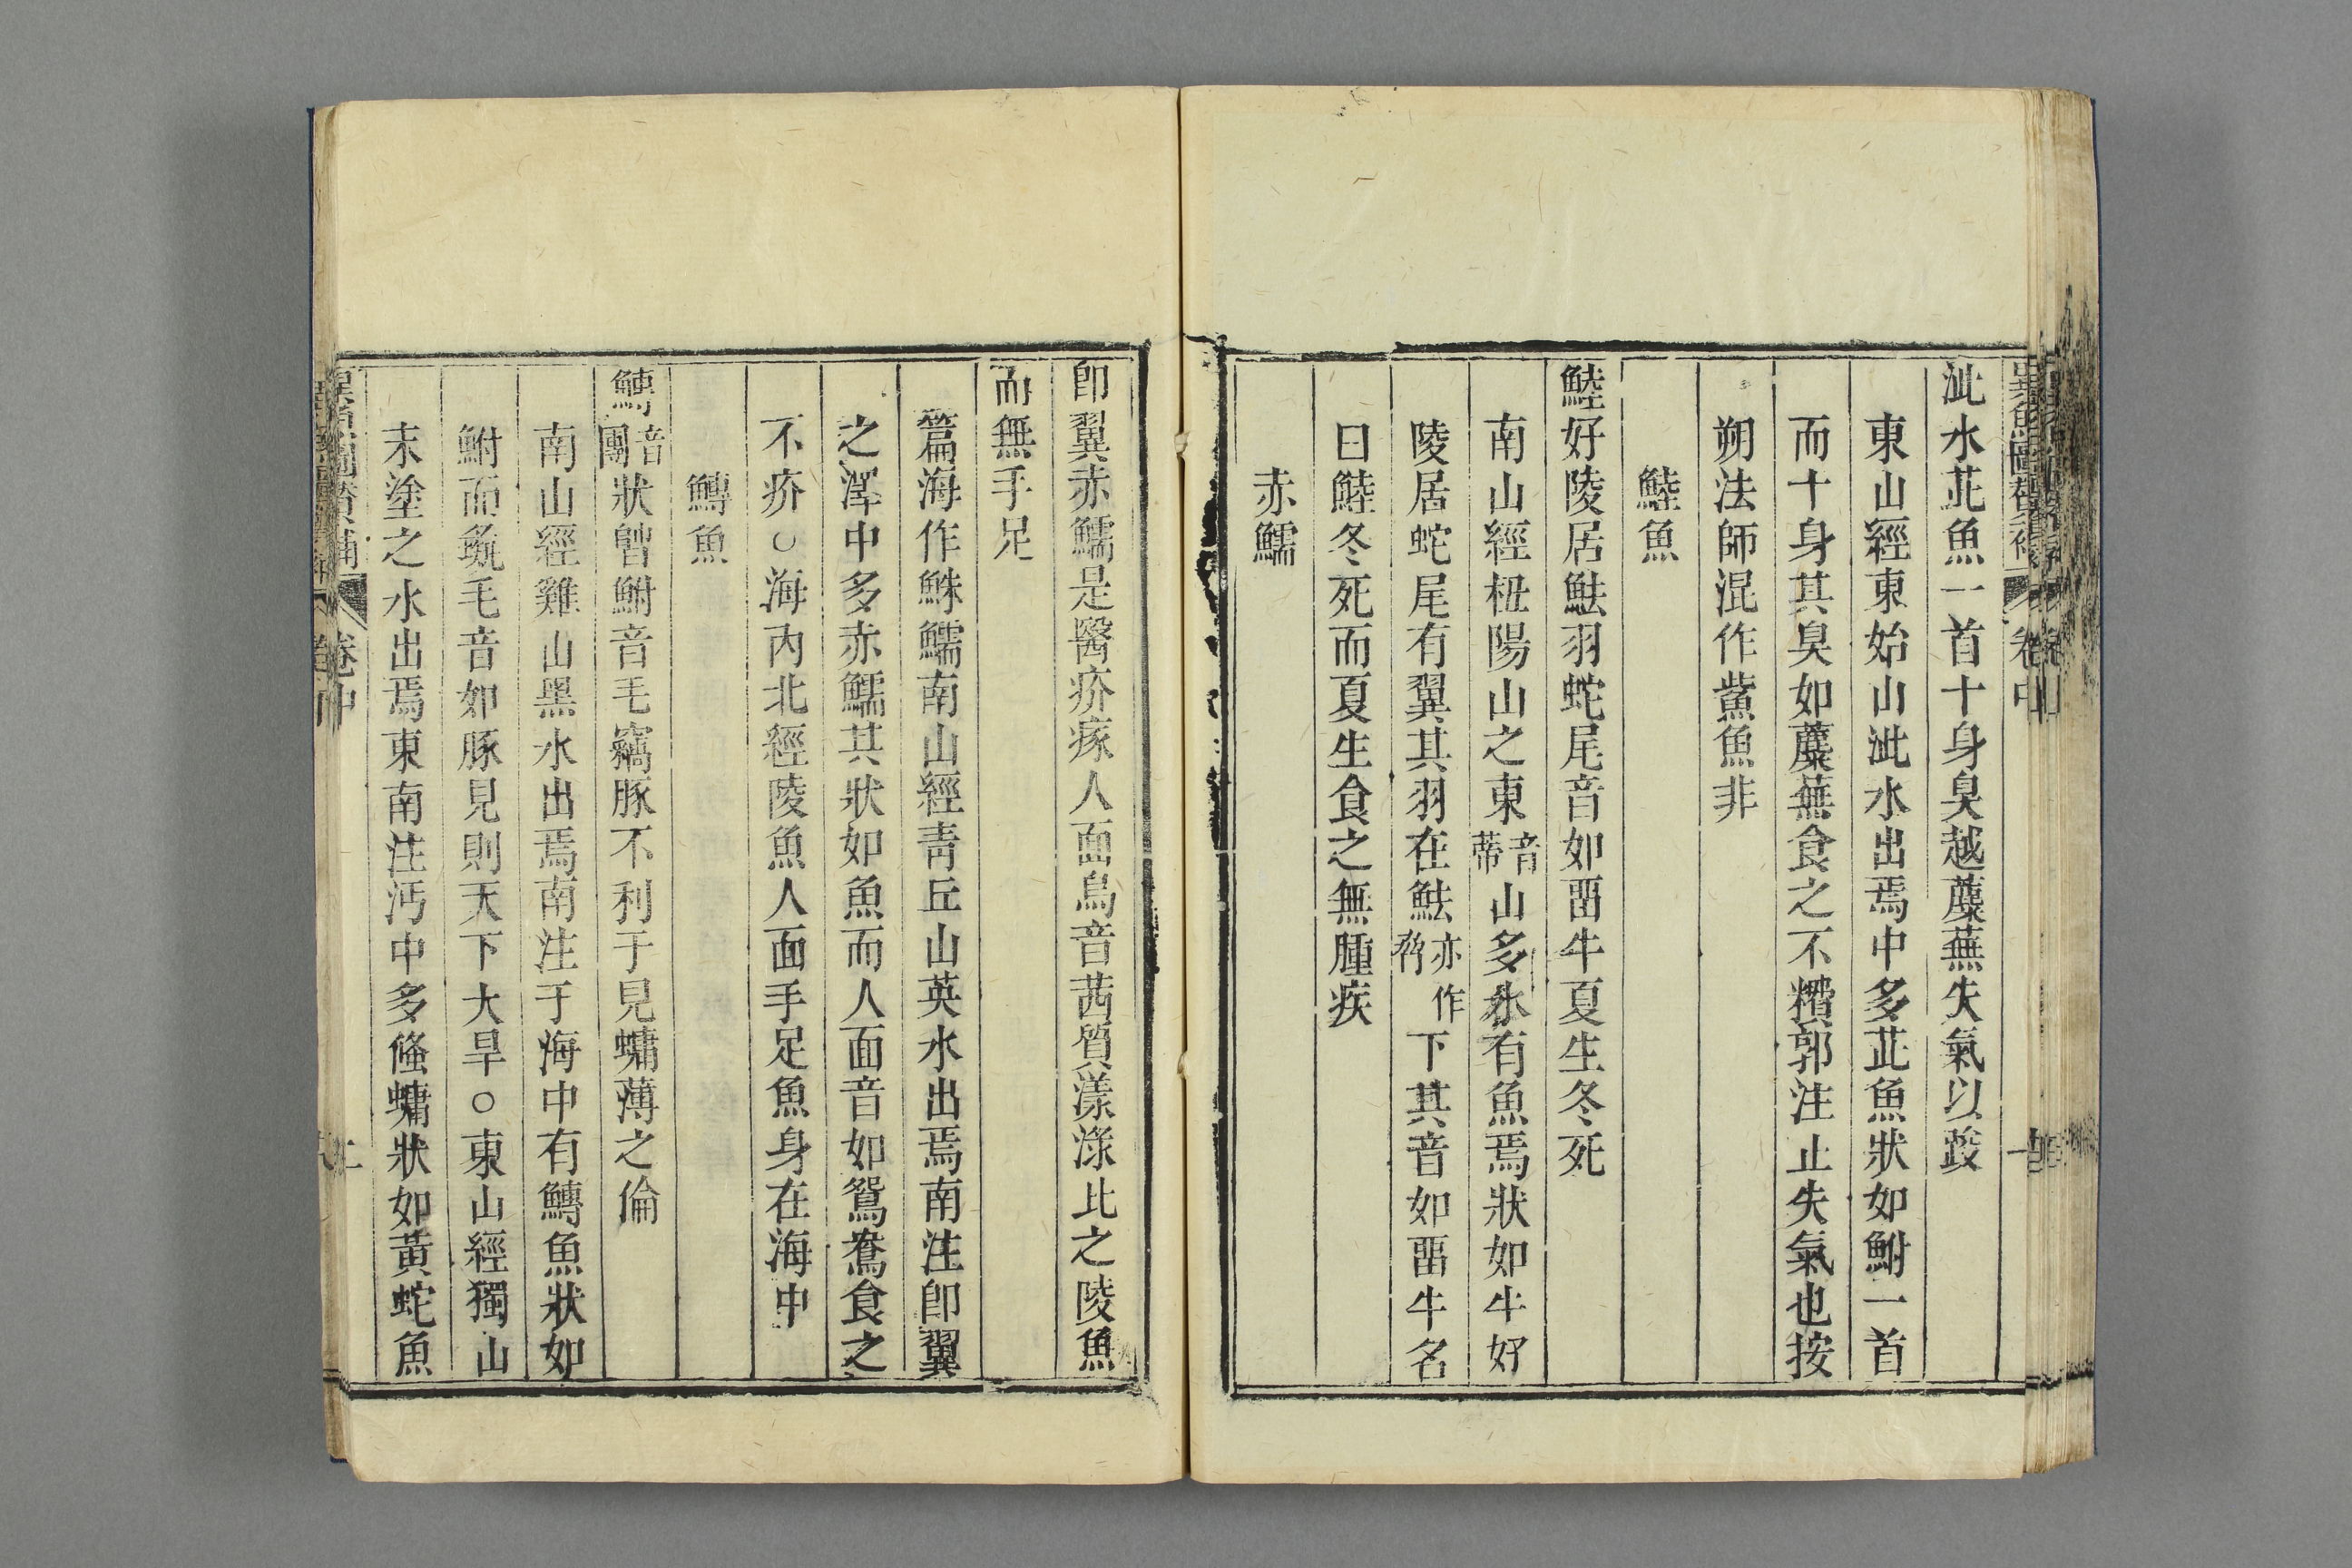 泚水茈魚一首十身臭越蘪蕪失氣以蹳
東山經東始山泚水出焉中多茈魚狀如鮒一首
而十身其臭如蘪蕪食之不䊧郭注止失氣也按
朔法師混作鮆魚非
鯥魚
鯥好陵居魼羽蛇尾音如畱牛夏生冬死
南山經杻陽山之東音蔕山多水有魚焉狀如牛好
陵居蛇尾有翼其羽在魼亦作下其音如畱牛名
曰鯥冬死而夏生食之無腫疾
赤鱬
卽翼赤鱬是醫疥瘃人面鳥音茜質漾淥比之陵魚
而無手足
篇海作鮢鱬南山經靑丘山英水出焉南注卽翼
之澤中多赤鱬其狀如魚而人面音如鴛鴦食之
不疥○海內北經陵魚人面手足魚身在海中
鱄魚
鱄音團狀曶鮒音毛竊豚不利于見䗤薄之倫
南山經雞山黑水出焉南注于海中有鱄魚狀如
鮒而彘毛音如豚見則天下大旱○東山經獨山
末塗之水出焉東南注沔中多偹䗤狀如黃蛇魚
卷中